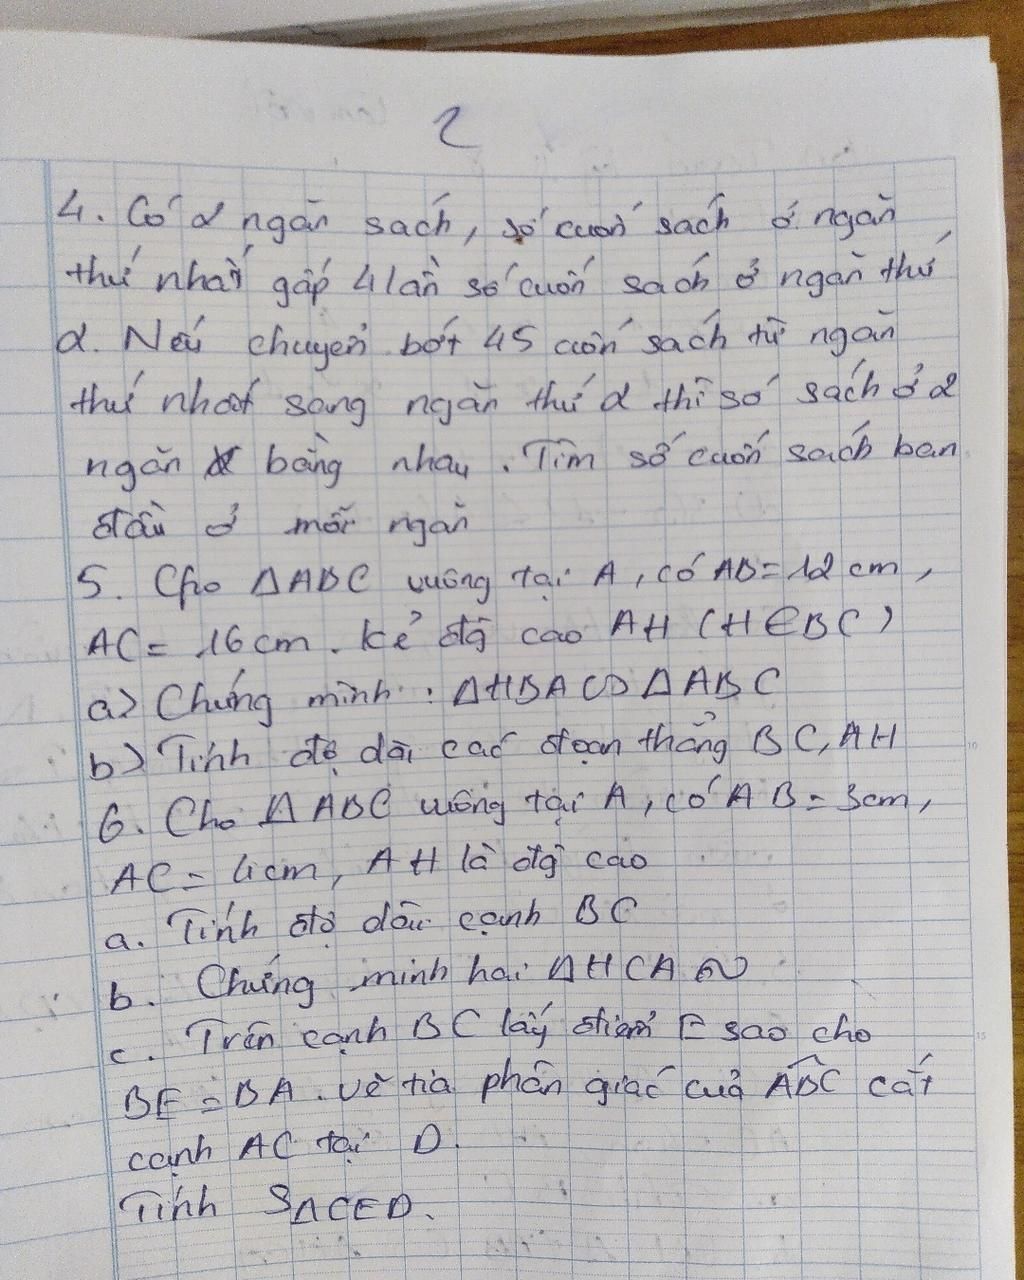 2
4. Có 2 ngăn sách, số cuốn sách ở ngăn
thứ nhất gấp 4 lần số cuốn sách ở ngăn thứ
2. Nếu chuyển bớt 45 cuốn sách từ ngăn
thứ nhất sang ngăn thứ 2 thì số sách ở 2
ngăn bằng nhau. Tìm số cuốn sách ban
đầu ở mỗi ngăn
5. Cho ΔABC vuông tại A, có AB = 12 cm,
AC = 16 cm. Kẻ đg cao AH (H ∈ BC)
a) Chứng minh: ΔHBA ∽ ΔABC
b) Tính độ dài các đoạn thẳng BC, AH
6. Cho ΔABC vuông tại A, có AB = 3cm,
AC = 4cm, AH là đg cao
a. Tính độ dài cạnh BC
b. Chứng minh hai ΔHCA ∽
c. Trên cạnh BC lấy điểm E sao cho
BE = BA. Vẽ tia phân giác của ABC cắt
cạnh AC tại D.
Tính SΔCED.